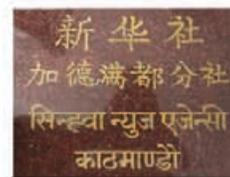 新华社
加德满都分社
सिन्ह्वा न्युज एजेन्सी
काठमाण्डौ